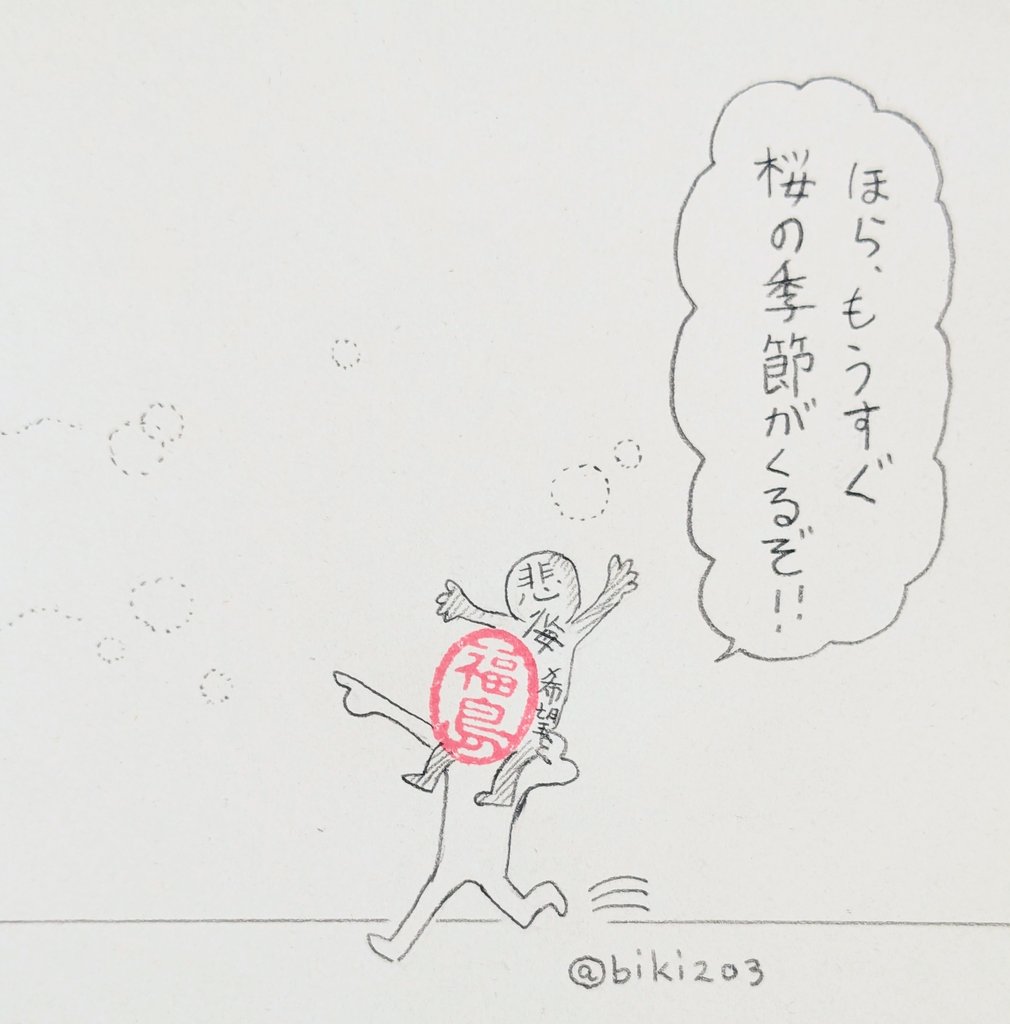 ほら、もうすぐ
桜の季節がくるぞ!!
悲
希望
福島
@biki203